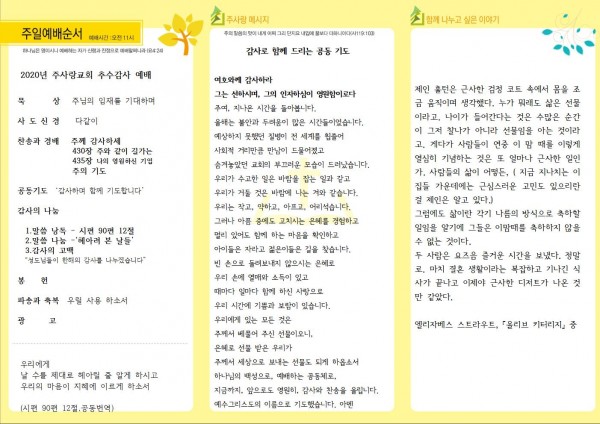 주일예배순서
예배시간 : 오전11시
하나님은 영이시니 예배하는 자가 신령과 진정으로 예배할찌니라 (요4:24)
2020년 주사랑교회 추수감사 예배
묵 상 주님의 임재를 기대하며
사 도 신 경 다같이
찬송과 경배 주께 감사하세
430장 주와 같이 길가는
435장 나의 영원하신 기업
주의 기도
공동기도 "감사하며 함께 기도합니다"
감사의 나눔
1.말씀 낭독 - 시편 90편 12절
2.말씀 나눔 -'헤아려 본 날들'
3.감사의 고백
"성도님들이 한해의 감사를 나누겠습니다"
봉 헌
파송과 축복 우릴 사용 하소서
광 고
우리에게
날 수를 제대로 헤아릴 줄 알게 하시고
우리의 마음이 지혜에 이르게 하소서
(시편 90편 12절,공동번역)
주사랑 메시지
주의 말씀의 맛이 내게 어찌 그리 단지요 내입에 꿀보다 더하니이다(시119:103)
감사로 함께 드리는 공동 기도
여호와께 감사하라
그는 선하시며, 그의 인자하심이 영원함이로다
주여, 지나온 시간을 돌아봅니다.
올해는 불안과 두려움이 많은 시간들이었습니다.
예상하지 못했던 질병이 전 세계를 휩쓸어
사회적 거리만큼 만남이 드물어졌고
숨겨놓았던 교회의 부끄러운 모습이 드러났습니다.
우리가 수고한 일은 바람을 잡는 일과 같고
우리가 거둘 것은 바람에 나는 겨와 같습니다.
우리는 작고, 약하고, 아프고, 어리석습니다.
그러나 아픔 중에도 고치시는 은혜를 경험하고
멀리 있어도 함께 하는 마음을 확인하고
아이들은 자라고 젊은이들은 길을 찾습니다.
빈 손으로 돌려보내지 않으시는 은혜로
우리 손에 열매와 소득이 있고
때마다 일마다 함께 하신 사랑으로
우리 시간에 기쁨과 보람이 있습니다.
우리에게 있는 모든 것은
주께서 베풀어 주신 선물이오니,
은혜로 선물 받은 우리가
주께서 세상으로 보내는 선물도 되게 하옵소서
하나님의 백성으로, 예배하는 공동체로,
지금까지, 앞으로도 영원히, 감사와 찬송을 올립니다.
예수그리스도의 이름으로 기도했습니다. 아멘
함께 나누고 싶은 이야기
제인 홀턴은 근사한 검정 코트 속에서 몸을 조
금 움직이며 생각했다. 누가 뭐래도 삶은 선물
이라고, 나이가 들어간다는 것은 수많은 순간
이 그저 찰나가 아니라 선물임을 아는 것이라
고, 게다가 사람들이 연중 이 맘 때를 이렇게
열심히 기념하는 것은 또 얼마나 근사한 일인
가, 사람들의 삶이 어떻든, ( 지금 지나치는 이
집들 가운데에는 근심스러운 고민도 있으리란
걸 제인은 알고 있다.)
그럼에도 삶이란 각기 나름의 방식으로 축하할
일임을 알기에 그들은 이맘때를 축하하지 않을
수 없는 것이다.
두 사람은 요즈음 즐거운 시간을 보냈다. 정말
로, 마치 결혼 생활이라는 복잡하고 기나긴 식
사가 끝나고 이제야 근사한 디저트가 나온 것
만 같았다.
엘리자베스 스트라우트, 「올리브 키터리지」 중